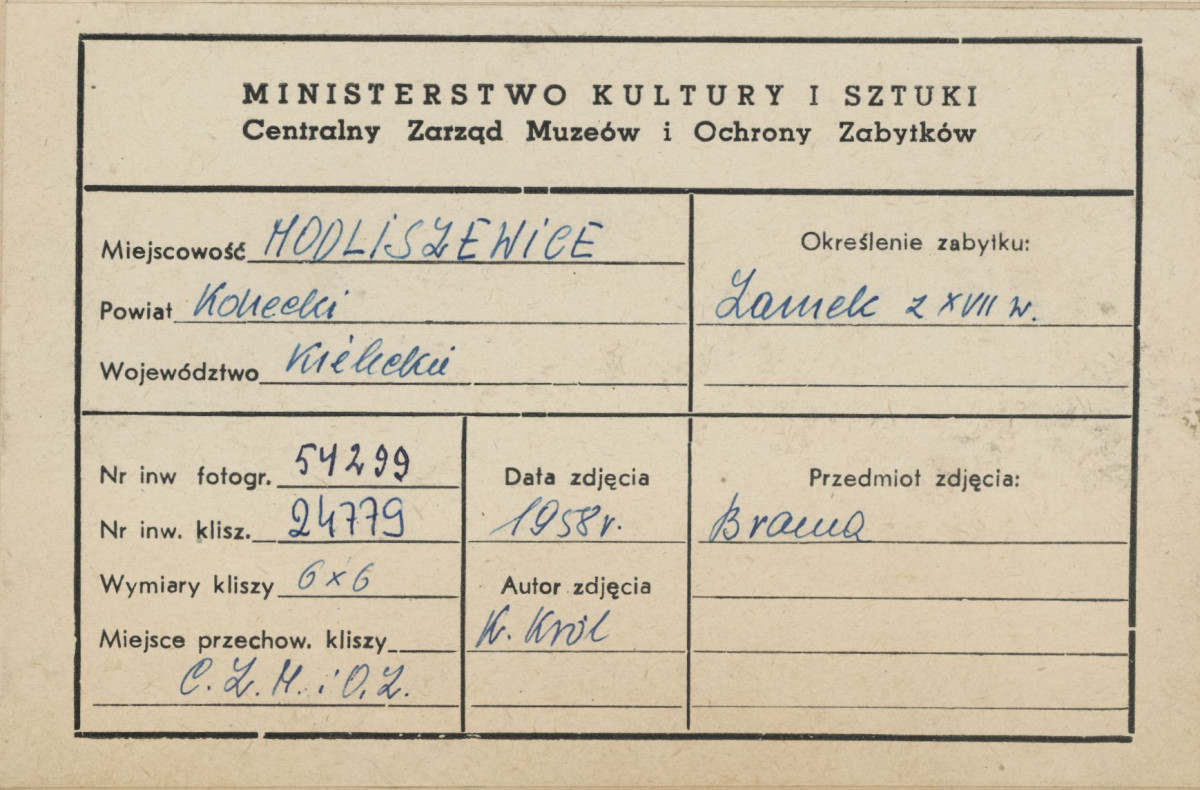 MINISTERSTWO KULTURY I SZTUKI
Centralny Zarząd Muzeów i Ochrony Zabytków
Miejscowość MODLISZEWICE
Powiat Konecki
Województwo Kieleckie
Określenie zabytku:
Zamek z XVII w.
Nr inw fotogr. 54299
Nr inw. klisz. 24779
Wymiary kliszy 6x6
Miejsce przechow. kliszy
C.Z.M. i O.Z.
Data zdjęcia
1958r.
Autor zdjęcia
K. Król
Przedmiot zdjęcia:
Brama